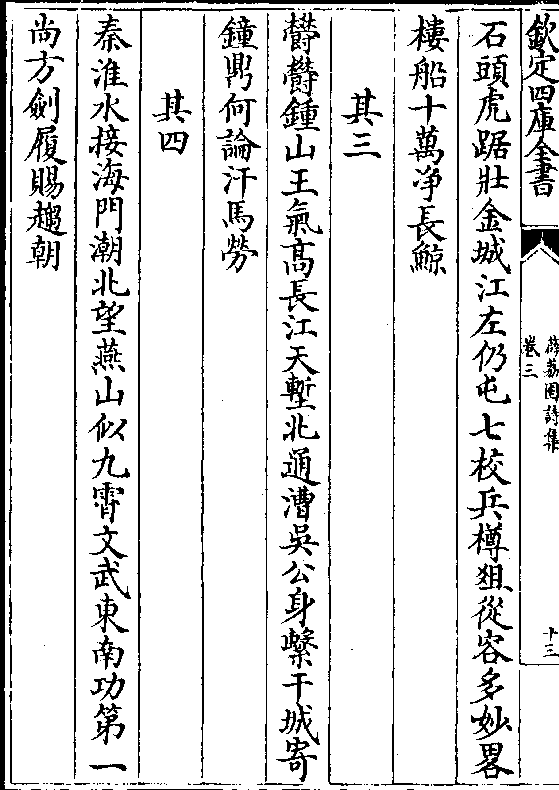 欽定四庫全書
薜荔園詩集
卷三
十三
石頭虎踞壯金城江左仍屯七校兵樽俎從容多妙畧
樓船十萬净長鯨
其三
鬱鬱鍾山王氣髙長江天塹北通漕吳公身繫干城寄
鐘鼎何論汗馬勞
其四
秦淮水接海門潮北望燕山似九霄文武東南功第一
尚方劍履賜趨朝